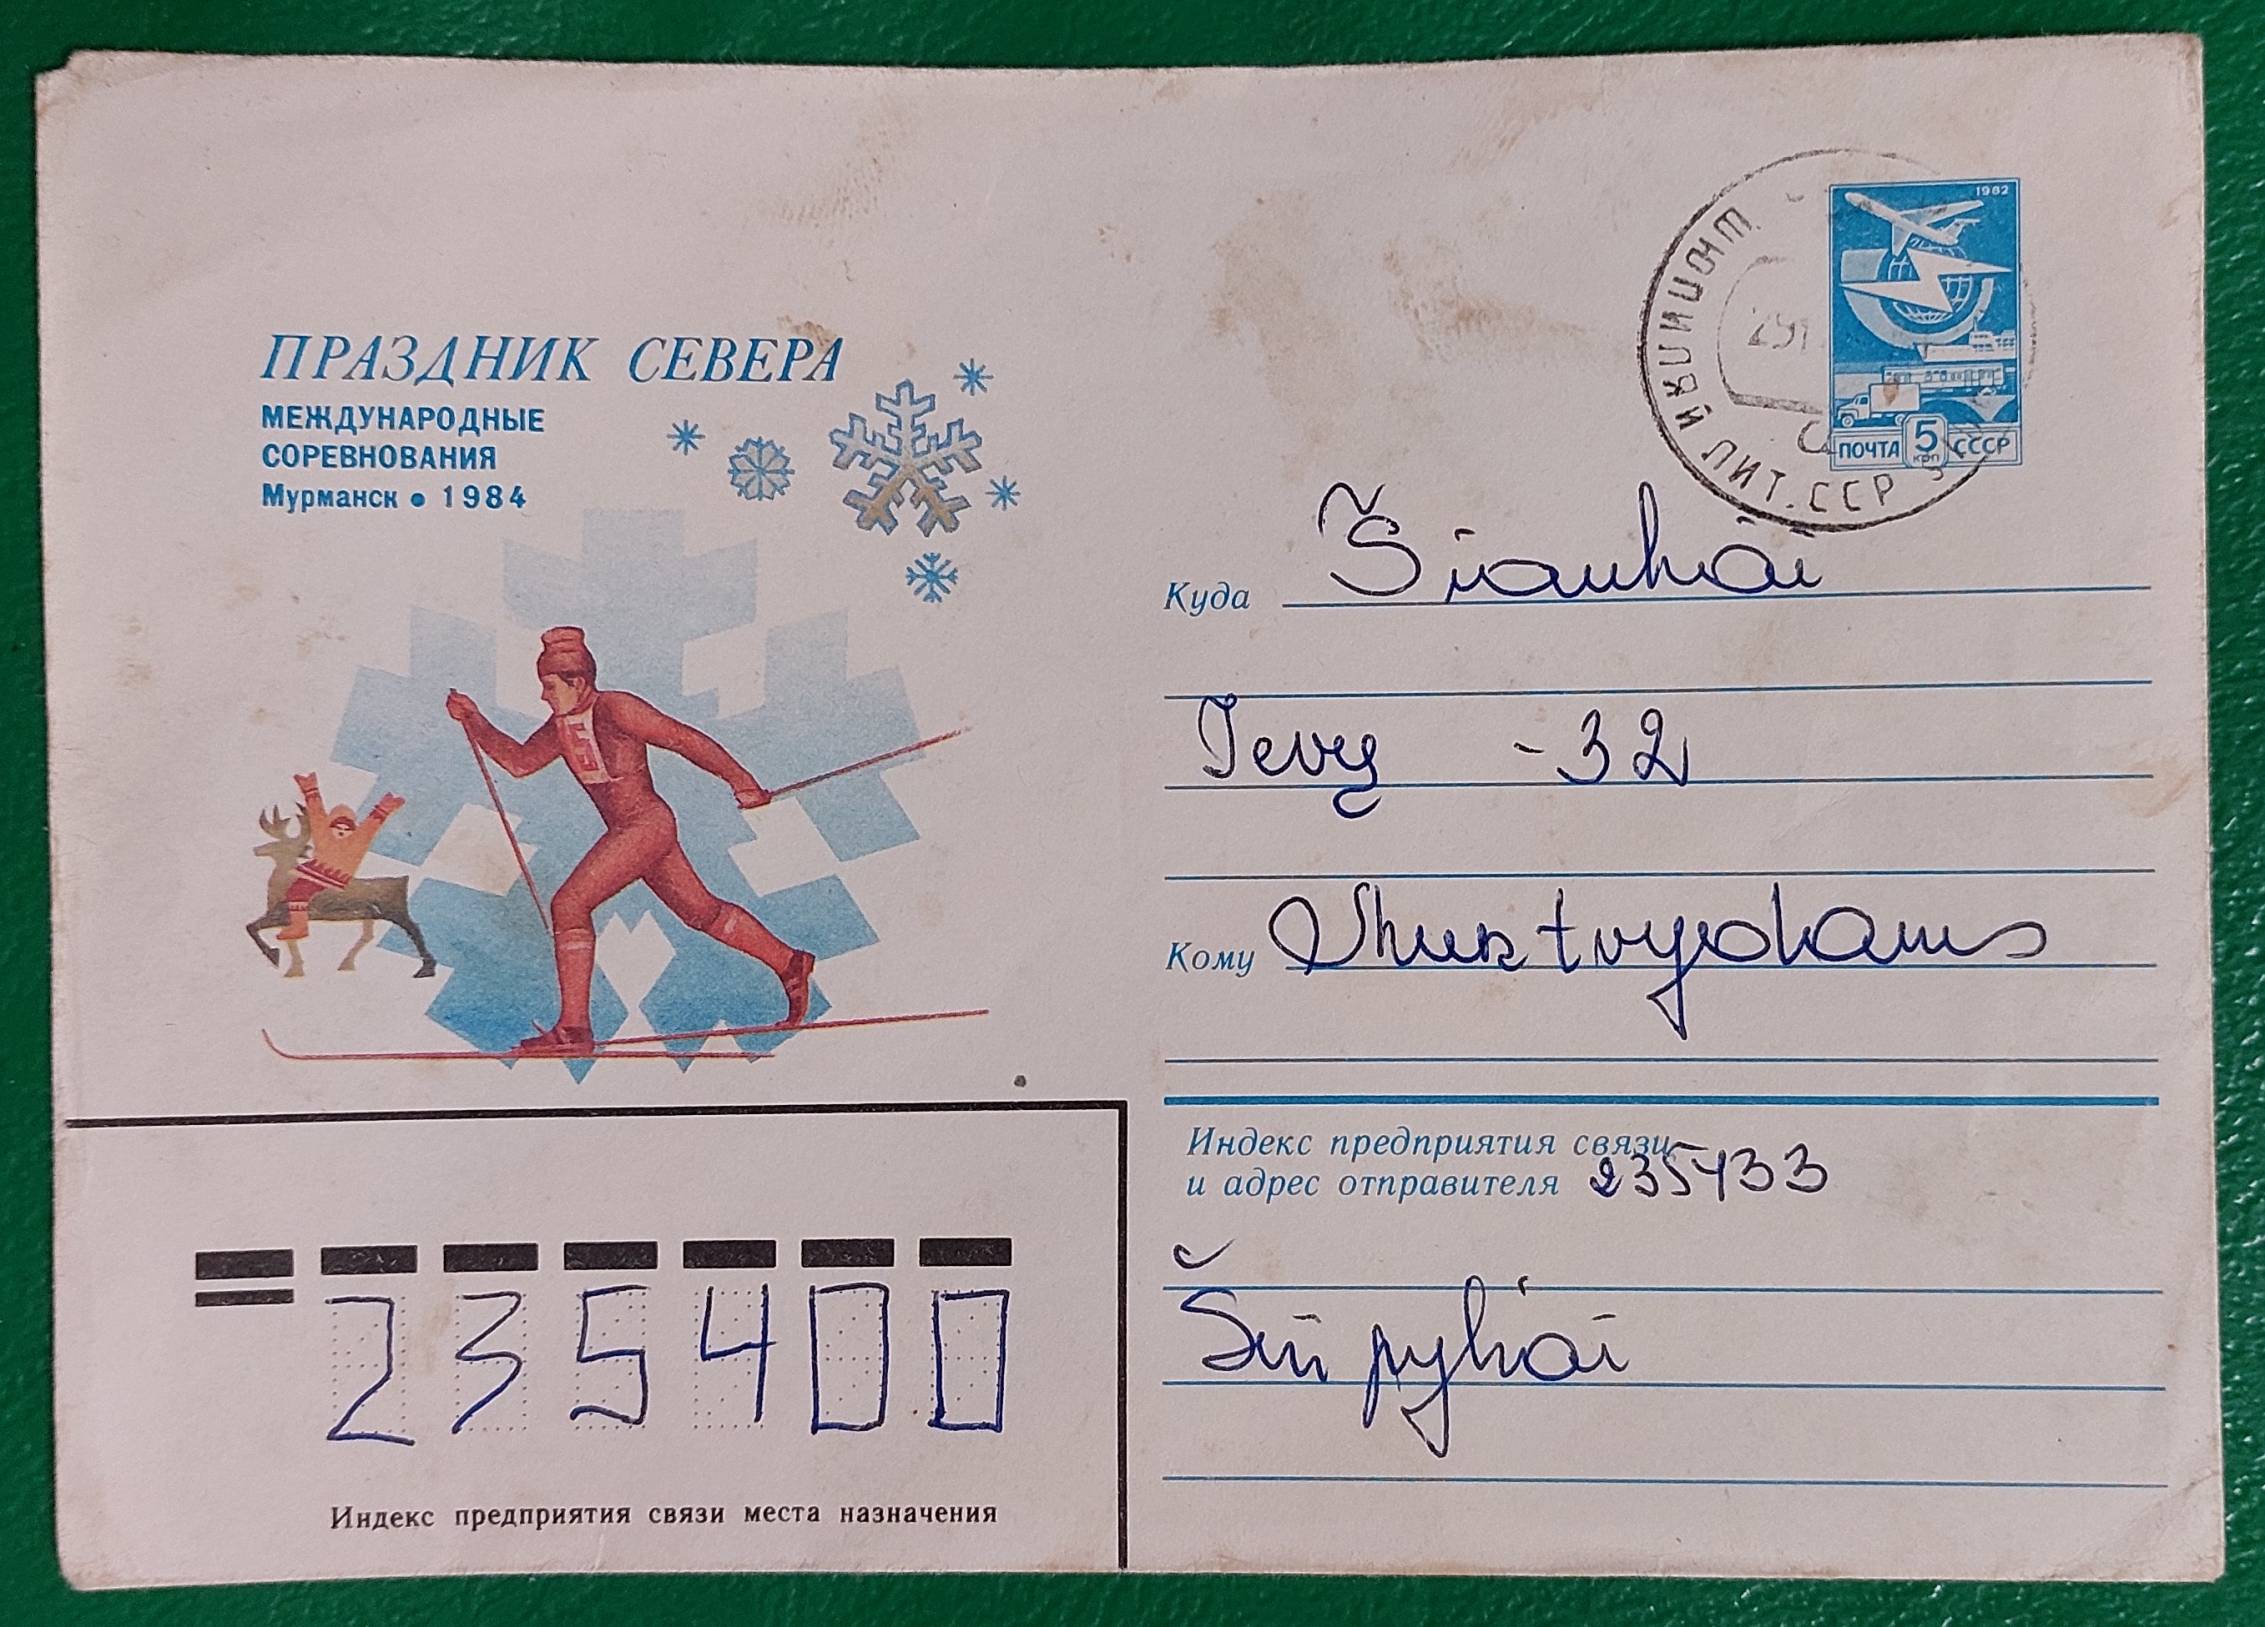 ПРАЗДНИК СЕВЕРА
МЕЖДУНАРОДНЫЕ
СОРЕВНОВАНИЯ
Мурманск • 1984
1982
ПОЧТА 5 СССР
коп
ЛИТ. ССР
Куда Šiauliai
-32
Кому
Индекс предприятия связи
и адрес отправителя 235433
Šiupyliai
235400
Индекс предприятия связи места назначения